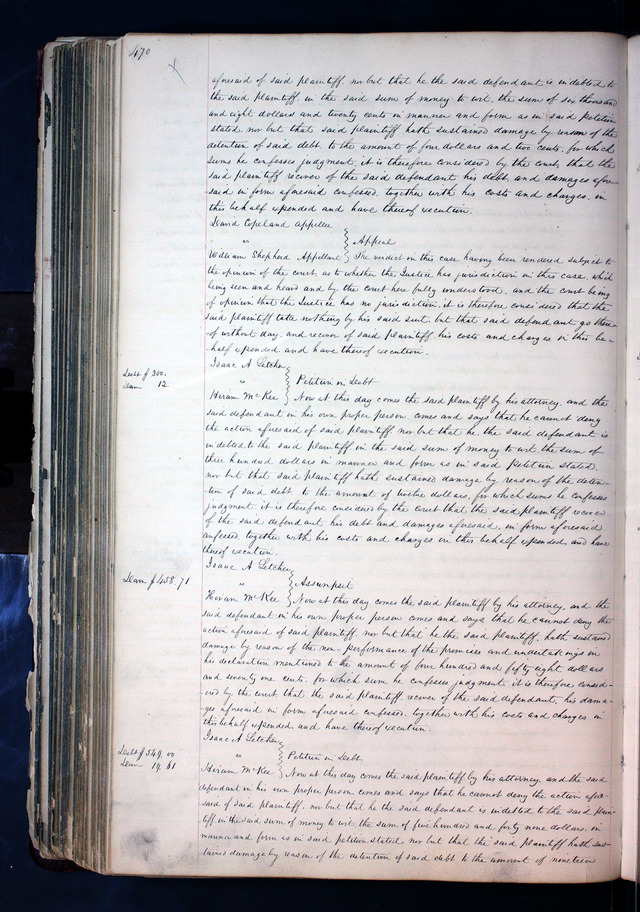 470
aforesaid of said plaintiff, nor but that he the said defendant is indebted to
the said plaintiff, in the said sum of money to wit, the sum of six thousand
and eight dollars and twenty cents in manner and form as in said petition
stated, nor but that said plaintiff hath sustained damage by reason of the
detention of said debt, to the amount of four dollars and two cents, for which
sums he confesses judgment, it is therefore considered by the court, that the
said plaintiff recover of the said defendant his debt, and damages afore-
said in form aforesaid confessed, together with his costs and charges, in
this behalf expended and have thereof execution.
David Copeland appellee
" } Appeal
William Shepherd Appellant } The verdict in this case having been rendered subject to
the opinion of the court, as to whether the Justice has jurisdiction in this case, which
being seen and heard and by the court here fully understood, and the court being
of opinion that the Justice has no jurisdiction, it is therefore considered that the
said plaintiff take nothing by his said suit, but that said defendant go there-
of without day, and recover of said plaintiff, his costs and charges in this be-
half expended, and have thereof execution.
Isaac A Letcher
Debt $ 300.
Dam 12.
" } Petition in Debt
Hiram McKee } Now at this day comes the said plaintiff by his attorney, and the
said defendant in his own proper person, comes and says that he cannot deny
the action aforesaid of said plaintiff nor but that he the said defendant is
indebted to the said plaintiff in the said sum of money to wit the sum of
three hundred dollars in manner and form as in said petition stated,
nor but that said plaintiff hath sustained damage by reason of the deten-
tion of said debt to the amount of twelve dollars, for which sums he confesses
judgment, it is therefore considered by the court that the said plaintiff recover
of the said defendant his debt and damages aforesaid, in form aforesaid
confessed, together with his costs and charges in this behalf expended, and have
thereof execution.
Isaac A Letcher
Dam $ 458.71
" } Assumpsit
Hiram McKee } Now at this day comes the said plaintiff by his attorney, and the
said defendant in his own proper person comes and says, that he cannot deny the
action aforesaid of said plaintiff nor but that he the said plaintiff, hath sustained
damage by reason of the non-performance of the promises and undertakings in
his declaration mentioned to the amount of four hundred and fifty eight dollars
and seventy one cents, for which sum he confesses judgment, it is therefore consid-
ered by the court that the said plaintiff recover of the said defendant, his dama-
ges aforesaid in form aforesaid confessed, together with his costs and charges, in
this behalf expended and have thereof execution.
Isaac A Letcher
Debt $ 549.00
Dam 19.61
" } Petition in Debt
Hiram McKee } Now at this day comes the said plaintiff by his attorney, and the said
defendant in his own proper person comes and says that he cannot deny the action afore-
said of said plaintiff, nor but that he the said defendant is indebted to the said plain-
tiff, in the said sum of money to wit the sum of five hundred and forty nine dollars, in
manner and form as in said petition stated nor but that the said plaintiff hath sus-
tained damage by reason of the detention of said debt to the amount of nineteen